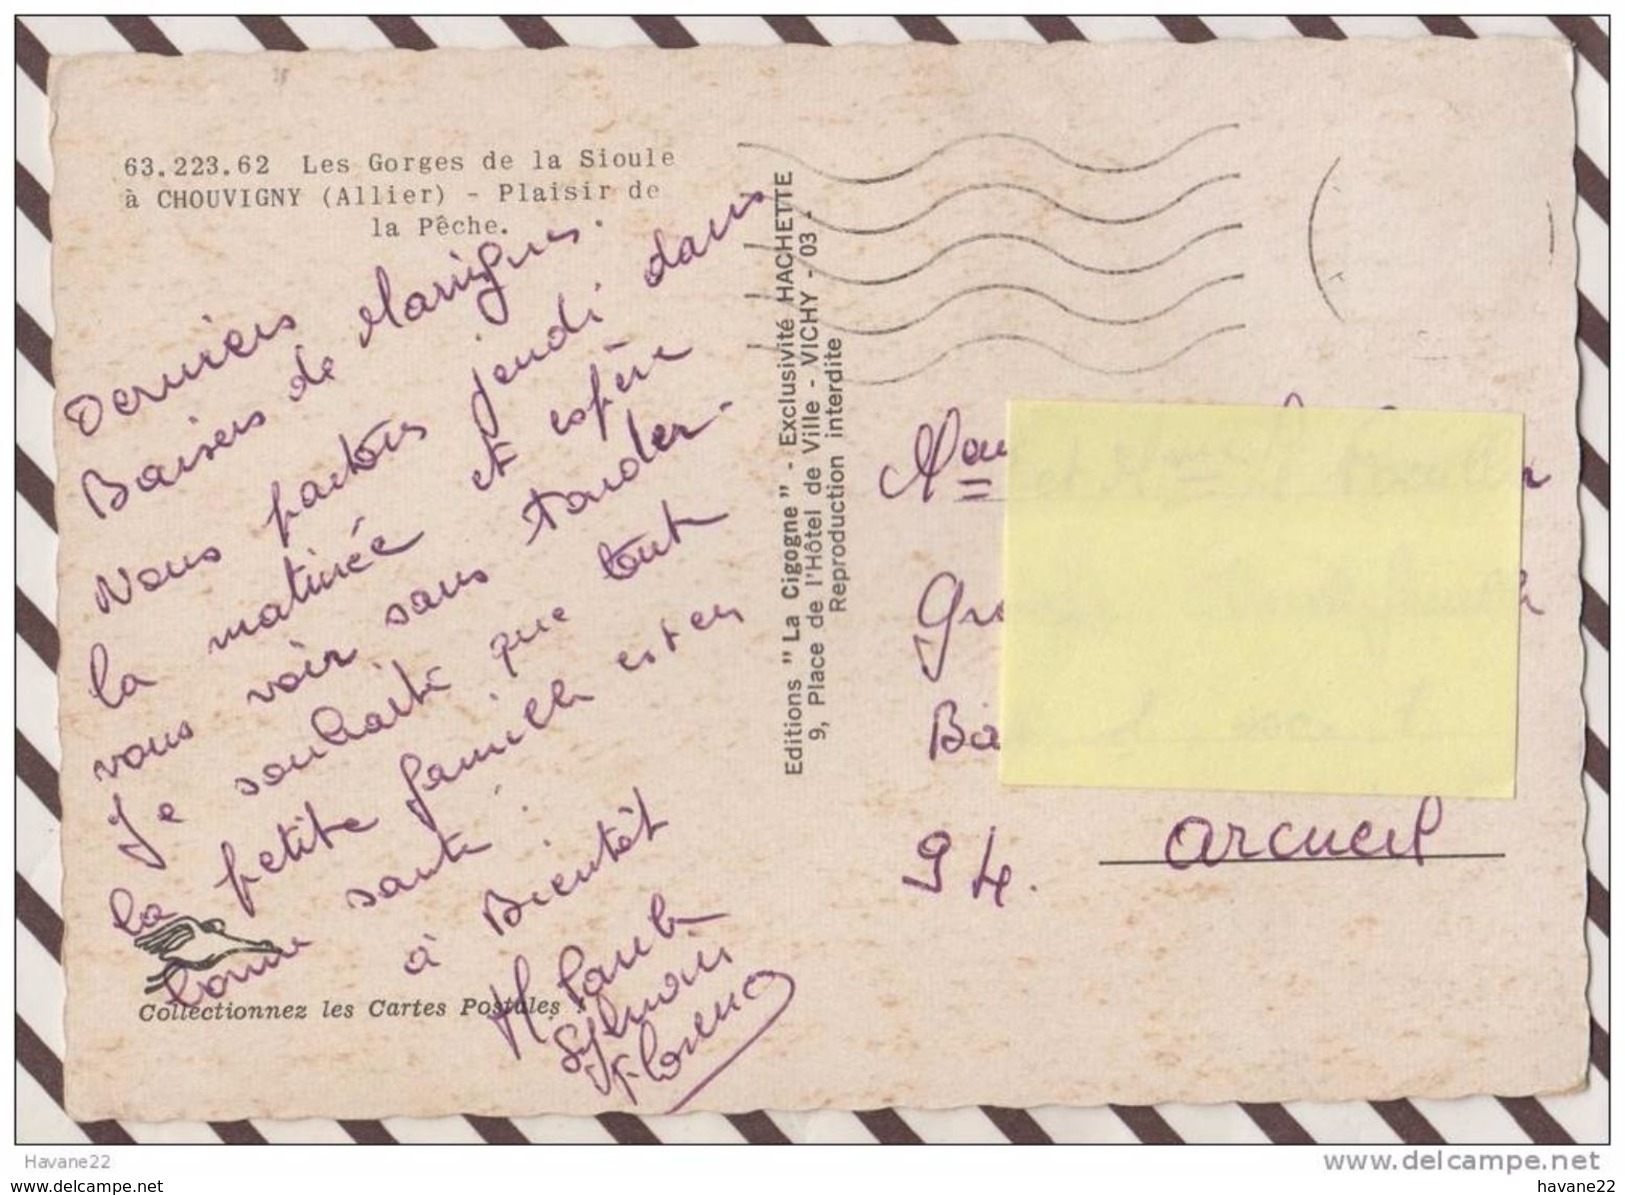 63.223.62 Les Gorges de la Sioule
à CHOUVIGNY (Allier) - Plaisir de
la Pêche.
Derniers
Baisers de Maringues.
Nous partons jeudi dans
la matinée et espère
vous voir sans tarder.
Je souhaite que toute
la petite famille est en
bonne santé.
à Bientôt
Sylvain
Florence
Collectionnez les Cartes Postales !
Editions " La Cigogne " - Exclusivité HACHETTE
9, Place de l'Hôtel de Ville - VICHY - 03 -
Reproduction interdite
94. arcueil
Havane22
www.delcampe.net
www.delcampe.net
havane22